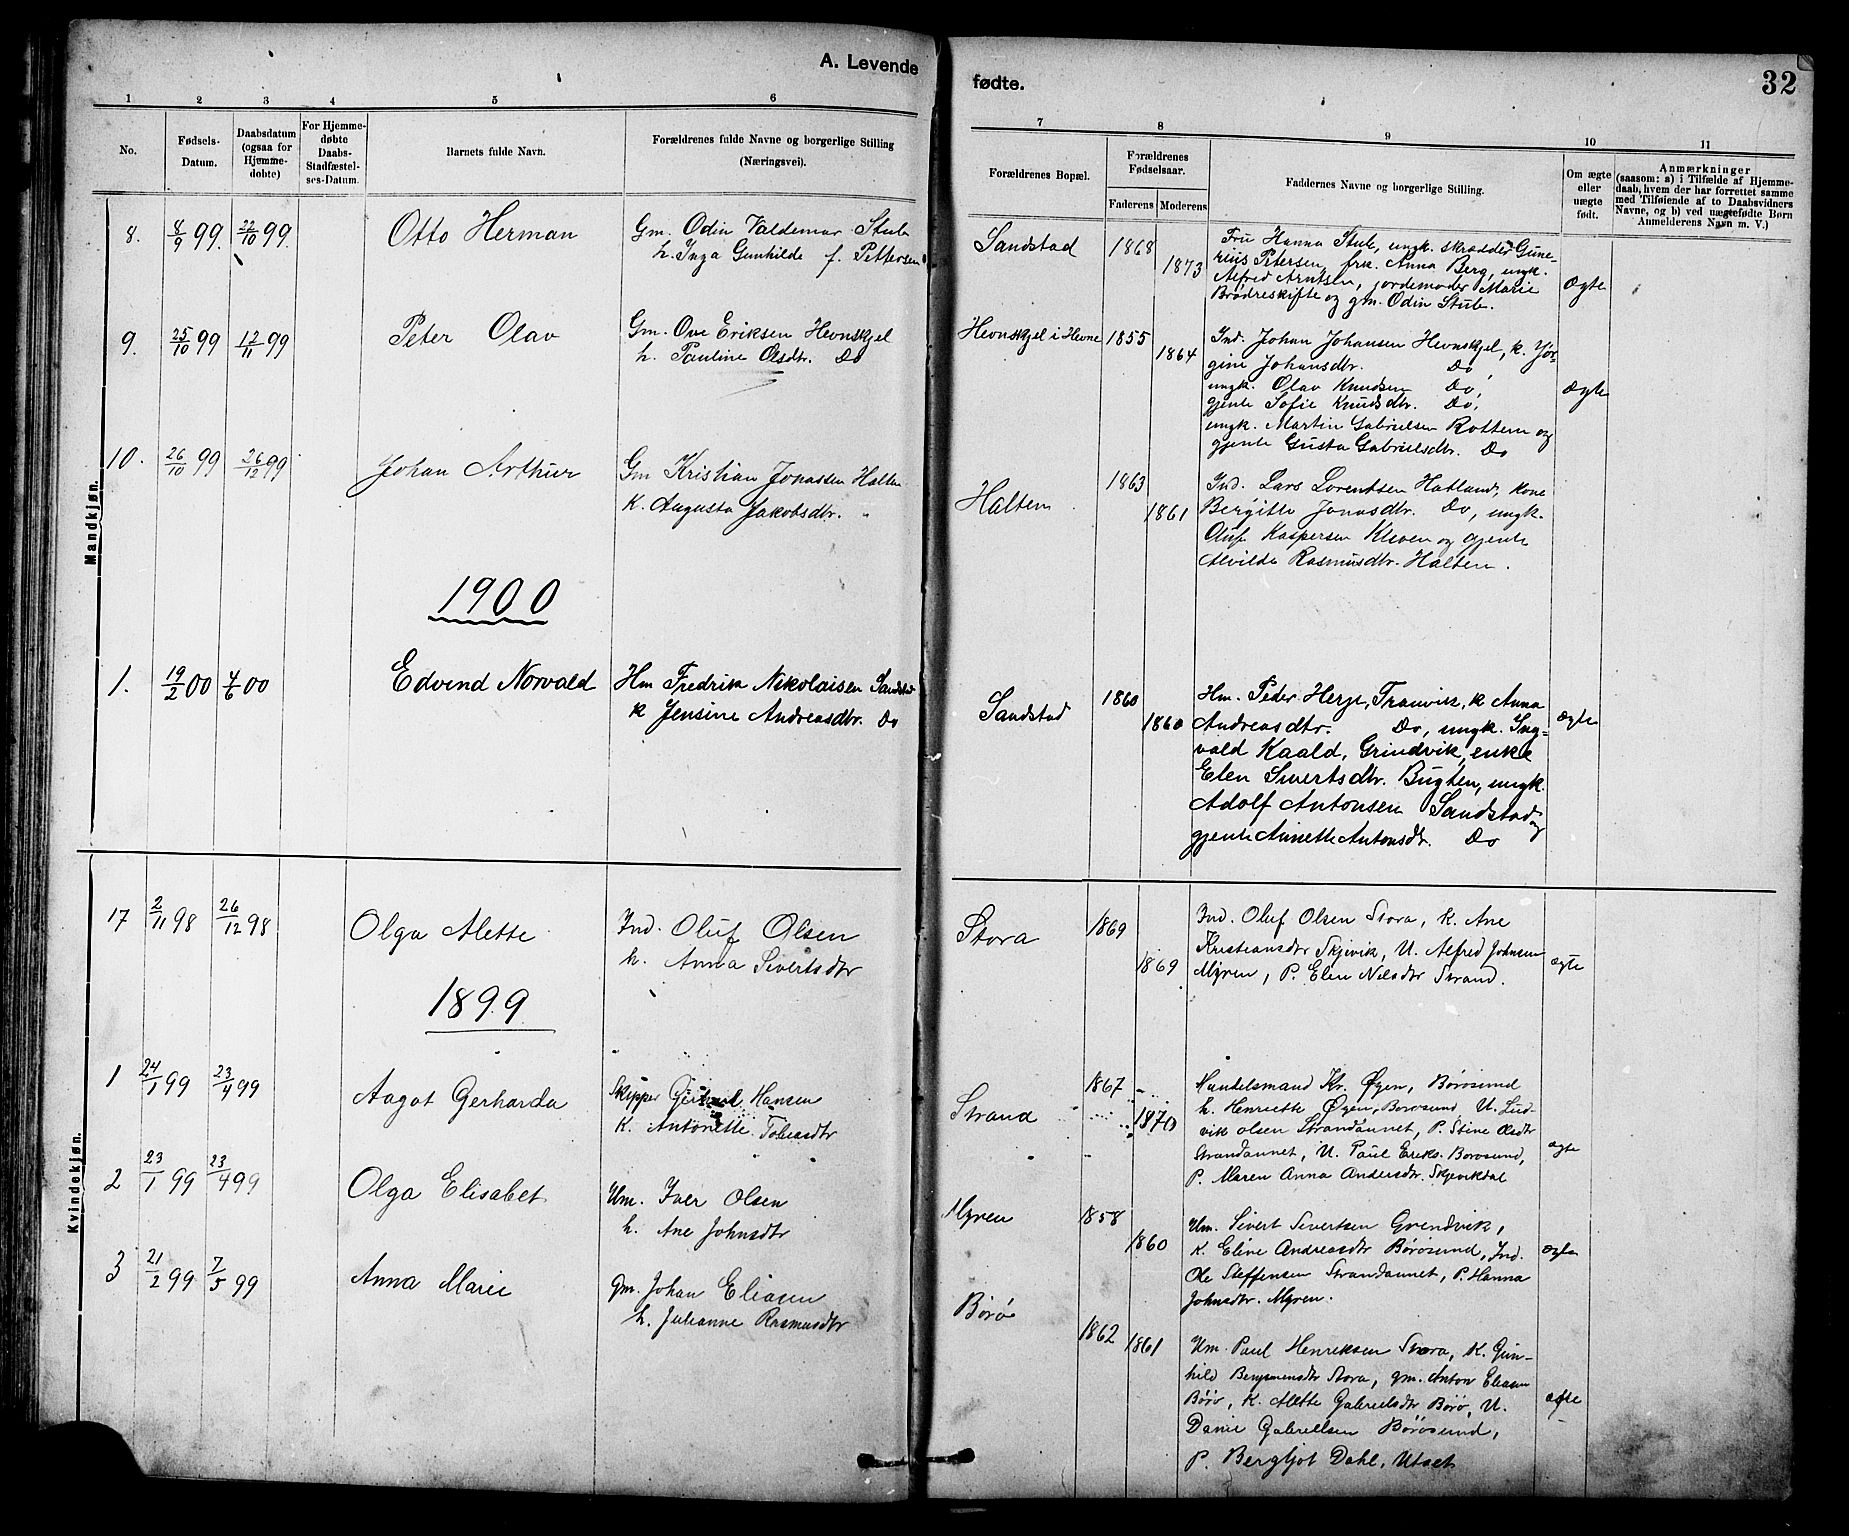 A. Levende fødte. 32
1 2 3 4 5 6 7 8 9 10 11
No. Fødsels-Datum. Daabsdatum (ogsaa for Hjemmedøbte) For Hjemmedøbte Daabs-Stadfæstelses-Datum. Barnets fulde Navn. Forældrenes fulde Navne og borgerlige Stilling (Næringsvei). Forældrenes Bopæl. Forældrenes Fødselsaar. Faderens Moderens Faddernes Navne og borgerlige Stilling. Om ægte eller uægte født. Anmærkninger (saasom: a) i Tilfælde af Hjemmedaab, hvem der har forrettet samme med Tilføiende af to Daabsvidners Navne, og b) ved uægtefødte Børn Anmelderens Navn m. V.)
Mandkjøn.
8. 8/9 99. 22/10 99. Otto Herman Gm. Odin Valdemar Stub
h. Inga Gunhilde f. Pettersen
Sandstad 1868 1873
Fru Hanna Stub, ungk. skrædder Gune-
rius Petersen, frk. Anna Berg, ungk.
Alfred Arntsen, jordemoder Marie
Brødreskifte og gm. Odin Stub.
Ægte
9. 25/10 99 12/11 99 Peter Olav Gm. Ove Eriksen Hevnskjel
h. Pauline Olsdtr. Do
Hevnskjel i Hevne 1855 1864
Ind. Johan Johansen Hevnskjel, k. Jør-
gine Johansdtr. Do,
ungk. Olav Knudsen Do,
gjente Sofie Knudsdtr. Do,
ungk. Martin Gabrielsen Rottem og
gjente Gusta Gabrielsdtr. Do
Ægte
10. 26/10 99 26/12 99 Johan Arthur Gm Kristian Jonassen Halten
K. Augusta Jakobsdtr. "
Halten 1863 1861
Ind. Lars Lorentsen Hatland, kone
Bergitte Jonasdtr. Do, ungk.
Oluf Kaspersen Kleven og gjente
Alvilde Rasmusdtr. Halten.
1900
1. 19/2 00 4/6 00 Edvind Norvald Hm Fredrik Nikolaisen Sandstad
k Jensine Andreasdtr. Do
Sandstad 1860 1860
Hm. Peder Herje, Tranvik, k Anna
Andreasdtr. Do, ungk. Ing-
vald Kaald, Grindvik, enke
Elen Sivertsdtr. Bugten, ungk.
Adolf Antonsen Sandstad og
gjente Anette Antonsdtr. Do
ægte
Kvindekjøn.
17 2/11 98 26/12 98 Olga Alette Ind. Oluf Olsen
h. Anna Sivertsdtr
Stora 1869 1869
Ind. Oluf Olsen Stora, K. Ane
Kristiansdtr Skjevik, U. Alfred Johnsen
Myren, P. Elen Nilsdtr Strand.
ægte
1899
1 24/1 99 23/4 99 Aagot Gerharda Skipper Hansen
K. Antonette Tobiasdtr
Strand 1867 1870
Handelsmand Kr. Øyen, Børøsund
h. Henriette Øyen, Borosund, U. Lud-
vik Olsen Strandannet, P. Stine Olsdtr
Strandannet, U. Paul Eriks. Borosund,
P. Maren Anna Andersdtr. Skjevikdal
ægte
2 23/1 99 23/4 99 Olga Elisabet Um. Iver Olsen
h. Ane Johnsdtr
Myren 1858 1860
Um. Sivert Sivertsen Grendvik,
K. Eline Andreasdtr Børøsund, Ind.
Ole Steffensen Strandannet, P. Hanna
Johnsdtr. Myren.
ægte
3 21/2 99 7/5 99 Anna Marie gm. Johan Eliasen
h. Julianne Rasmusdtr
Børø 1862 1861
Um. Paul Henriksen Stora, K. Gun-
hild Benjamensdtr Stora, gm. Anton Eliasen
Børø, K. Alette Gabrielsdtr Børø, U.
Danie Gabrielsen Børøsund,
P. Bergljot Dahl, Utset
ægte